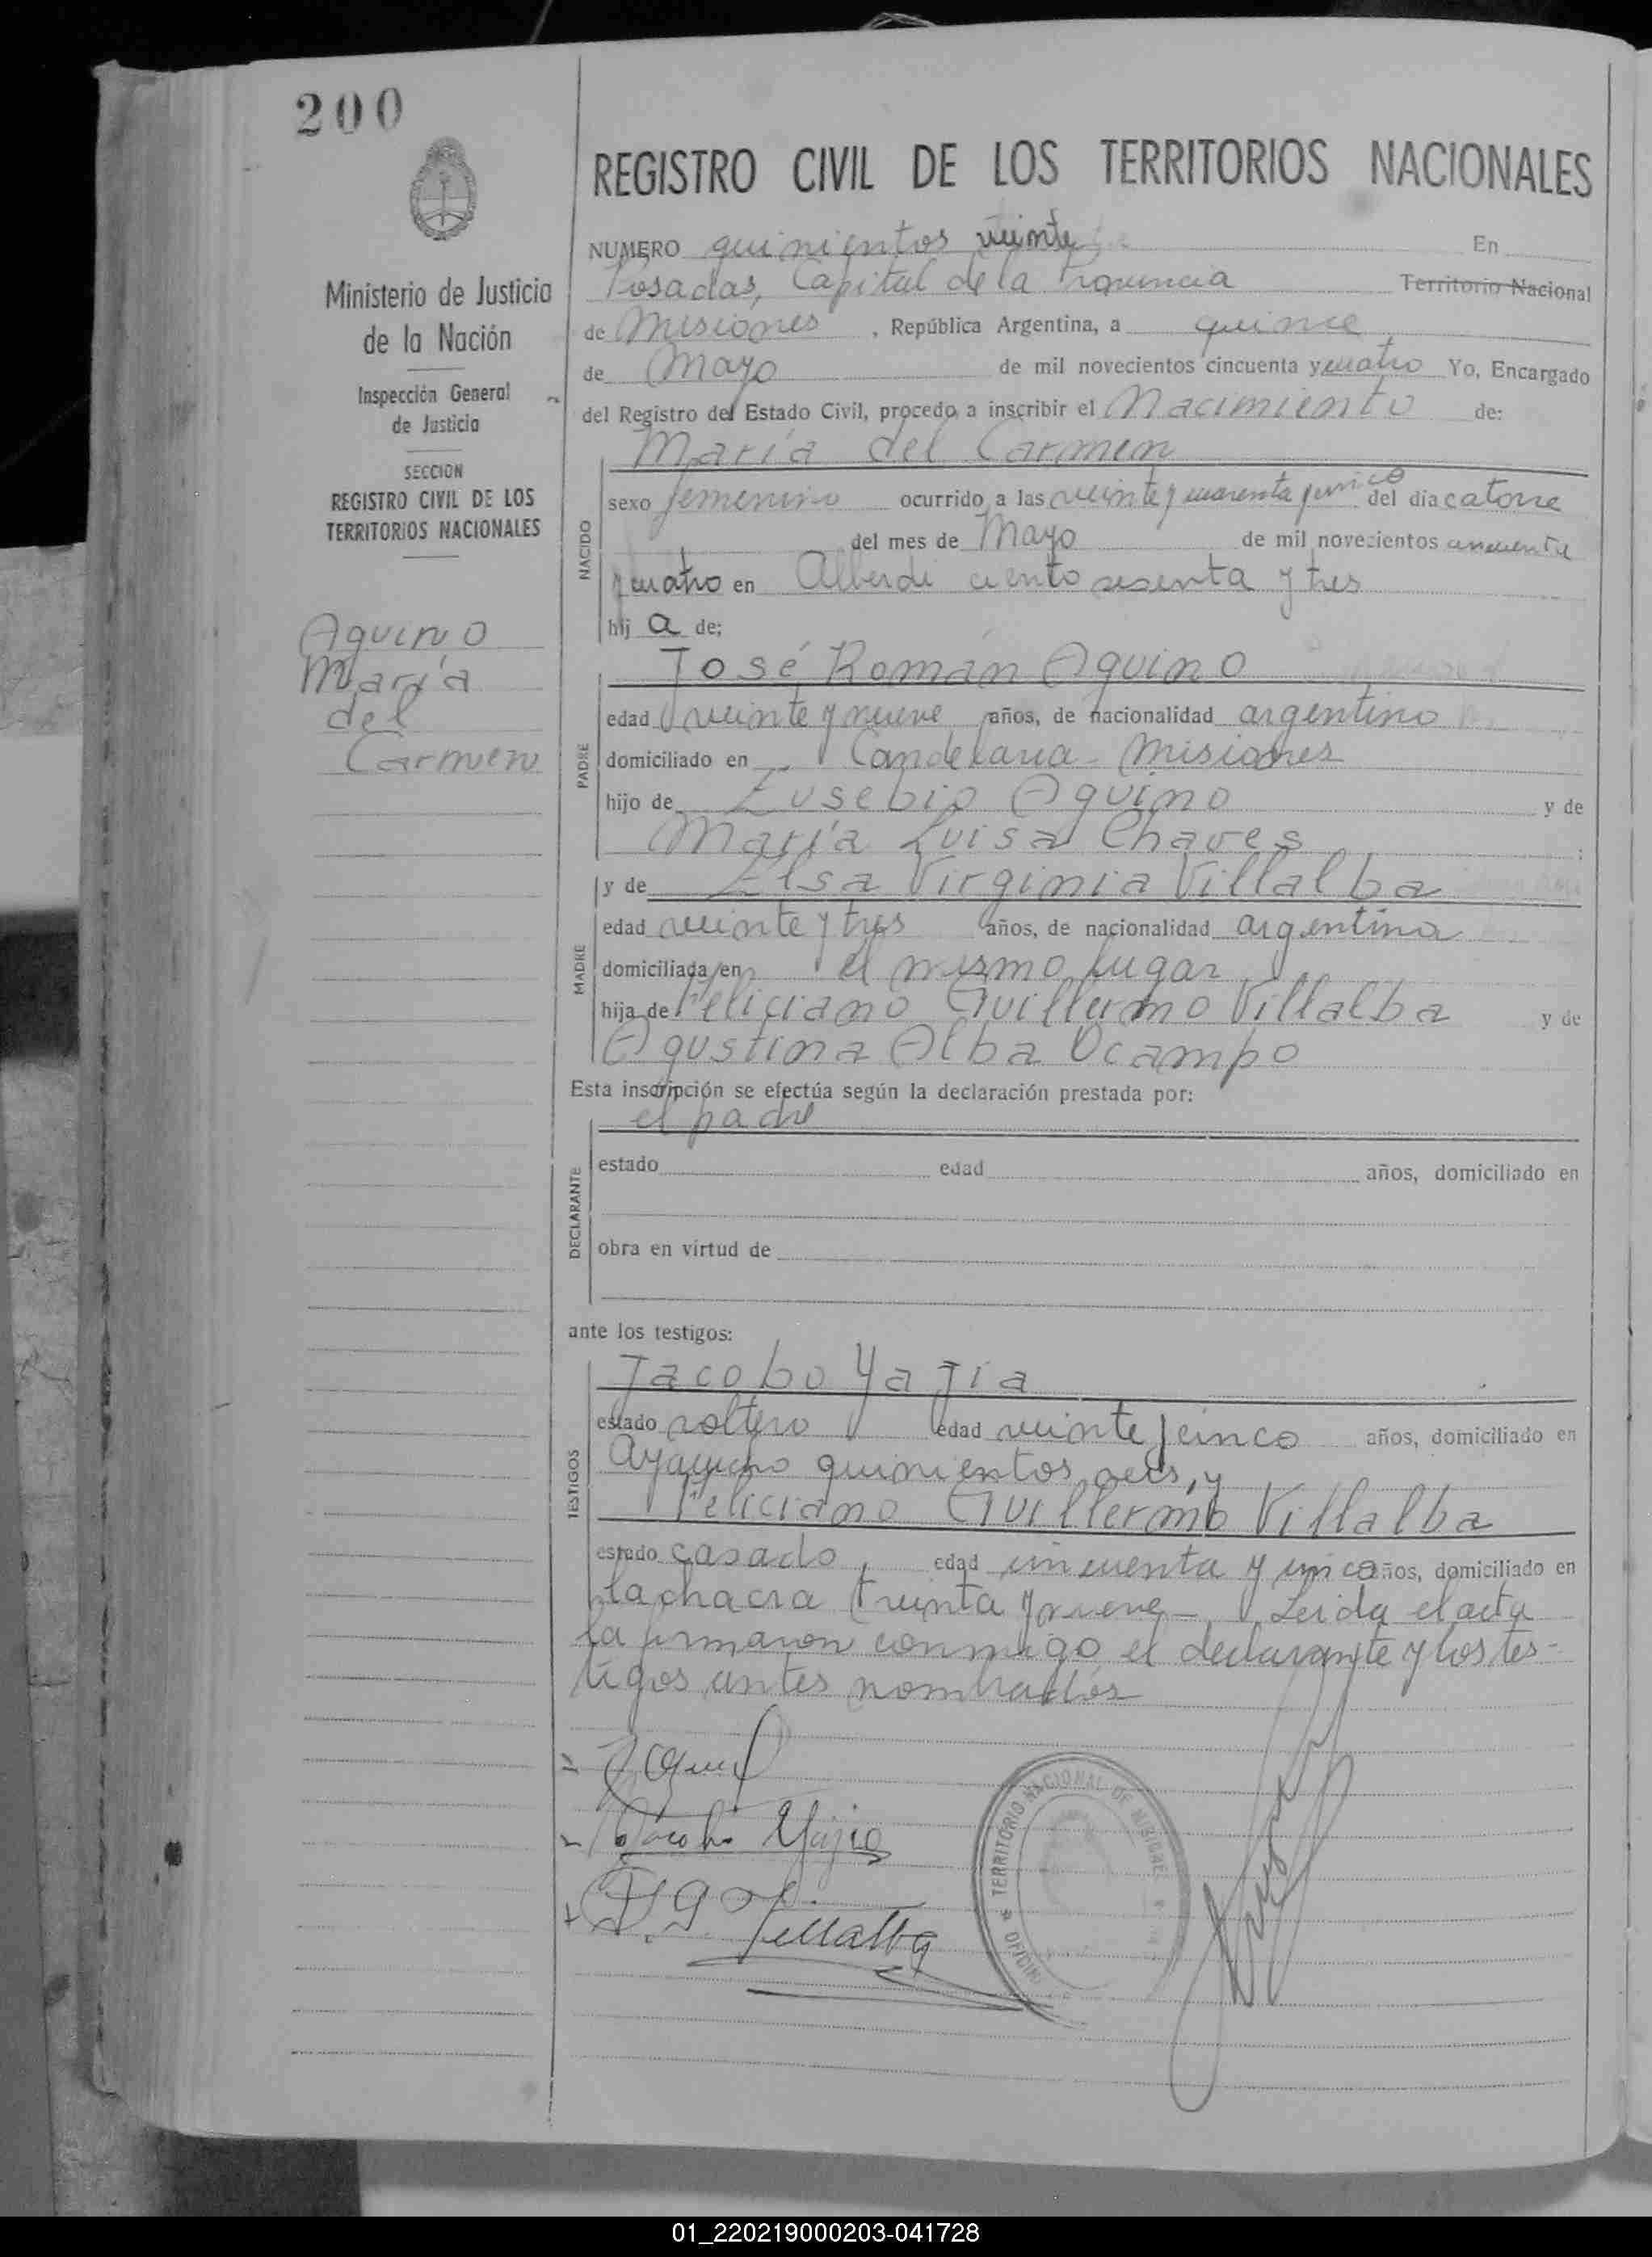 200
Ministerio de Justicia
de la Nación
Inspección General
de Justicia
SECCION
REGISTRO CIVIL DE LOS
TERRITORIOS NACIONALES
Aquino
María
del
Carmen
REGISTRO CIVIL DE LOS TERRITORIOS NACIONALES
NUMERO quinientos veinte En
Posadas, Capital de la Provincia Territorio Nacional
de Misiones, República Argentina, a quince
de Mayo de mil novecientos cincuenta y cuatro Yo, Encargado
del Registro del Estado Civil, procedo a inscribir el Nacimiento de:
María del Carmen
NACIDO
sexo femenino ocurrido a las veinte y cuarenta y cinco del día catorce
del mes de Mayo de mil novecientos cincuenta
y cuatro en Alberdi ciento sesenta y tres
hij a de;
José Román Aquino
PADRE
edad veinte y nueve años, de nacionalidad argentino
domiciliado en Candelaria - Misiones
hijo de Eusebio Aquino y de
María Luisa Chaves ;
y de Elsa Virginia Villalba
MADRE
edad veinte y tres años, de nacionalidad argentina
domiciliada en el mismo lugar
hija de Feliciano Guillermo Villalba y de
Agustina Alba Ocampo
Esta inscripción se efectúa según la declaración prestada por:
el padre
DECLARANTE
estado edad años, domiciliado en
obra en virtud de
ante los testigos:
Jacobo Yajía
TESTIGOS
estado soltero edad veinte y cinco años, domiciliado en
Ayacucho quinientos seis, y
Feliciano Guillermo Villalba
estado casado, edad cincuenta y cinco años, domiciliado en
la chacra treinta y nueve - Leida el acta
la firmaron conmigo el declarante y los tes-
tigos antes nombrados
Jacobo Yajía
Villalba
TERRITORIO NACIONAL DE MISIONES
01_220219000203-041728